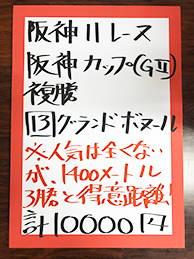 阪神11レース
阪神カップ(GⅡ)
複勝
13グランドボヌール
※人気は全くない
が、1400メートル
3勝と得意距離!
計10000円